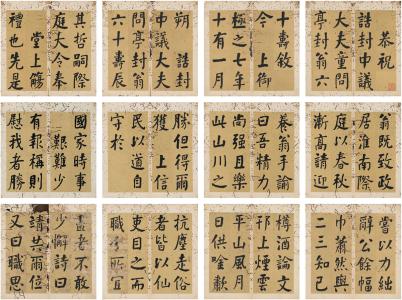 恭祝
誥封中議
大夫童問
亭封翁六
十壽敘
今上御
極之七年
十有一月
朔 誥封
中議大夫
問亭封翁
六十壽辰
其哲嗣際
庭大令奉
堂上觴
禮也先是
翁既致政
居淮南際
庭以春秋
漸高請迎
養翁手諭
曰吾精力
尚强且樂
此山川之
勝但得爾
獲上信
民以道自
守於
國家時事
艱難少
有報稱則
慰我者勝
嘗以力絀
辭公餘幅
巾蕭然與
二三知己
樽酒論文
邗上煙雲
平山風月
日供唫
抗塵走俗
者皆以仙
吏目之而
職所宜
盡者不敢
少懈詩曰
靖共爾位
又曰職思